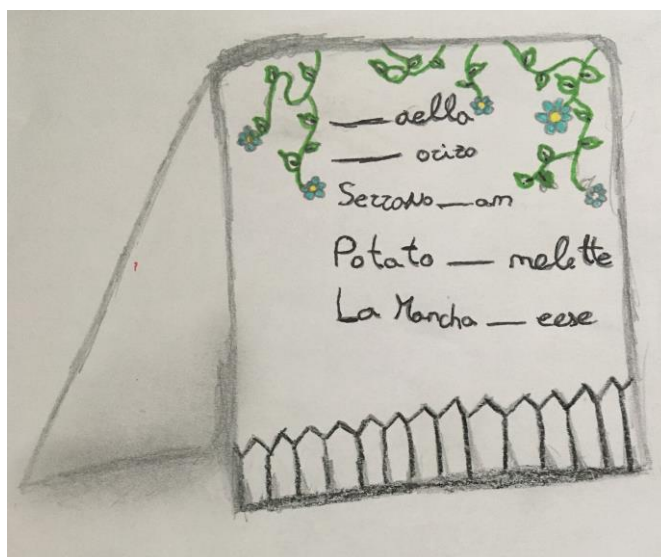 ___ aella
___ orizo
Serrano ___ am
Potato ___ melette
La Mancha ___ eese